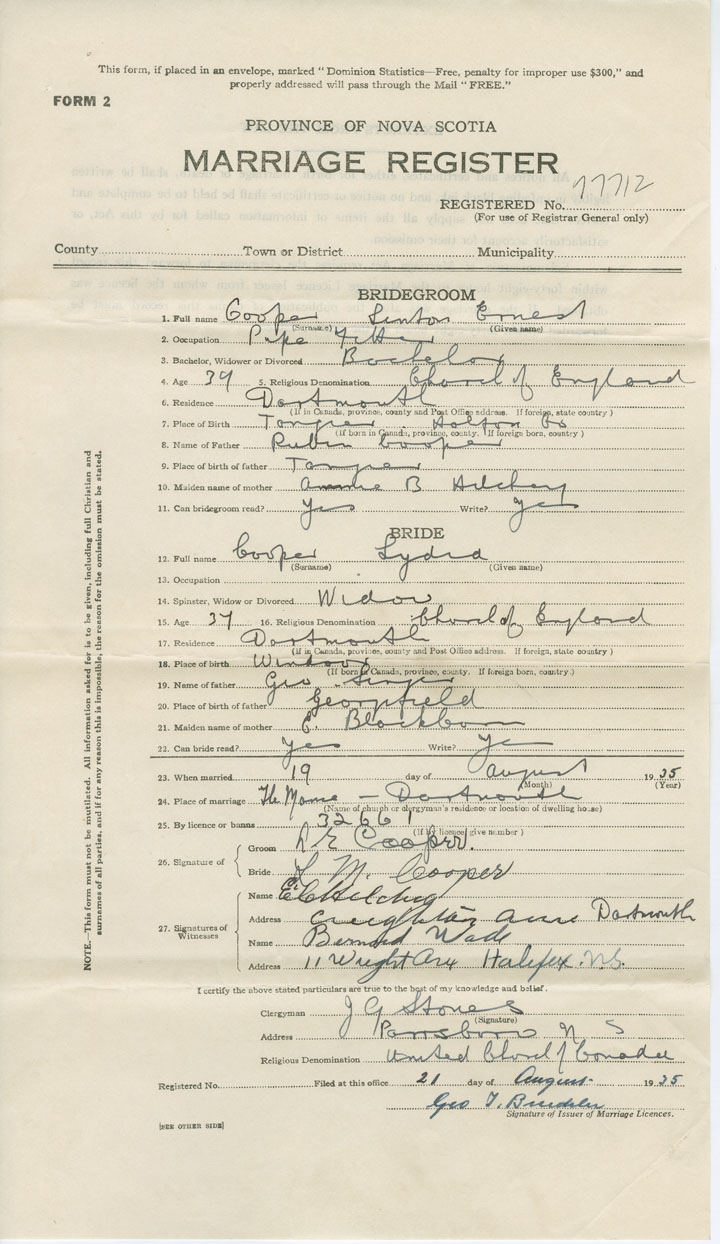 This form, if placed in an envelope, marked "Dominion Statistics—Free, penalty for improper use $300," and
properly addressed will pass through the Mail "FREE."
FORM 2
PROVINCE OF NOVA SCOTIA
MARRIAGE REGISTER
REGISTERED No. 77712
(For use of Registrar General only)
County Town or District Municipality
BRIDEGROOM
1. Full name Cooper Linton Ernest
(Surname) (Given name)
2. Occupation Pipe Fitter
3. Bachelor, Widower or Divorced Bachelor
4. Age 39 5. Religious Denomination Church of England
6. Residence Dartmouth
(If in Canada, province, county and Post Office address. If foreign, state country)
7. Place of Birth Tangier Halifax Co
(If born in Canada, province, county. If foreign born, country)
8. Name of Father Rubin Cooper
9. Place of birth of father Tangier
10. Maiden name of mother Annie B Hilchey
11. Can bridegroom read? Yes Write? Yes
BRIDE
12. Full name Cooper Lydia
(Surname) (Given name)
13. Occupation
14. Spinster, Widow or Divorced Widow
15. Age 37 16. Religious Denomination Church of England
17. Residence Dartmouth
(If in Canada, province, county and Post Office address. If foreign, state country)
18. Place of birth Windsor
(If born in Canada, province, county. If foreign born, country.)
19. Name of father Geo
20. Place of birth of father Georgefield
21. Maiden name of mother E. Blackburn
22. Can bride read? Yes Write? Yes
23. When married 19 day of August 1935
(Month) (Year)
24. Place of marriage The Manse — Dartmouth
(Name of church or clergyman's residence or location of dwelling house)
25. By licence or banns 32661
(If by licence give number)
26. Signature of
Groom L E Cooper.
Bride L. M. Cooper
27. Signatures of Witnesses
Name E C Hilchey
Address Creighton Ave Dartmouth
Name Bernard Wade
Address 11 Wright Ave Halifax. N.S.
I certify the above stated particulars are true to the best of my knowledge and belief.
Clergyman J G Stones
(Signature)
Address Parrsboro N S
Religious Denomination United Church of Canada
Registered No. Filed at this office 21 day of August 1935
Geo T.
Signature of Issuer of Marriage Licences.
[SEE OTHER SIDE]
NOTE.—This form must not be mutilated. All information asked for is to be given, including full Christian and
surnames of all parties, and if for any reason this is impossible, the reason for the omission must be stated.